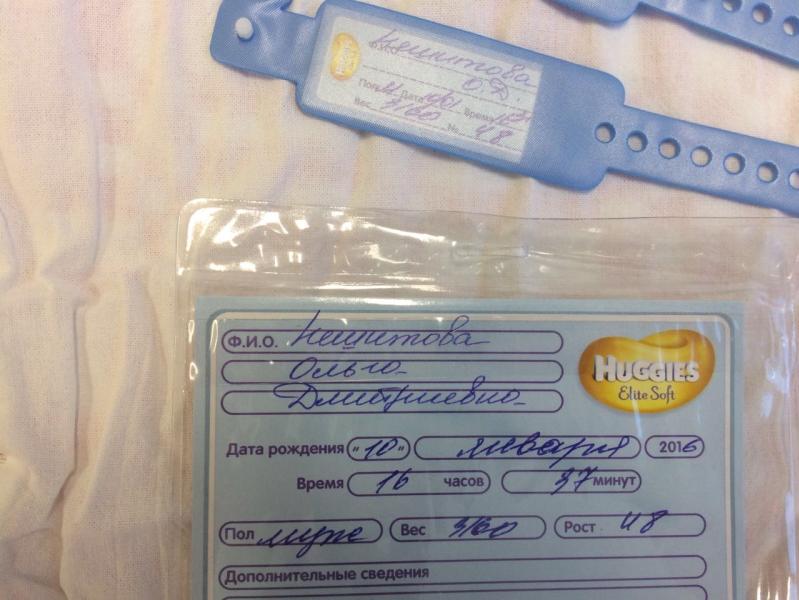 HUGGIES
Ф.И.О. Кешитова
О.Д.
Пол М Дата 10/01 Время 16 37
Вес 3160 № 48
Ф.И.О. Кешитова
Ольга
Дмитриевна
HUGGIES
Elite Soft
Дата рождения "10" января 2016
Время 16 часов 37 минут
Пол муж Вес 3160 Рост 48
Дополнительные сведения